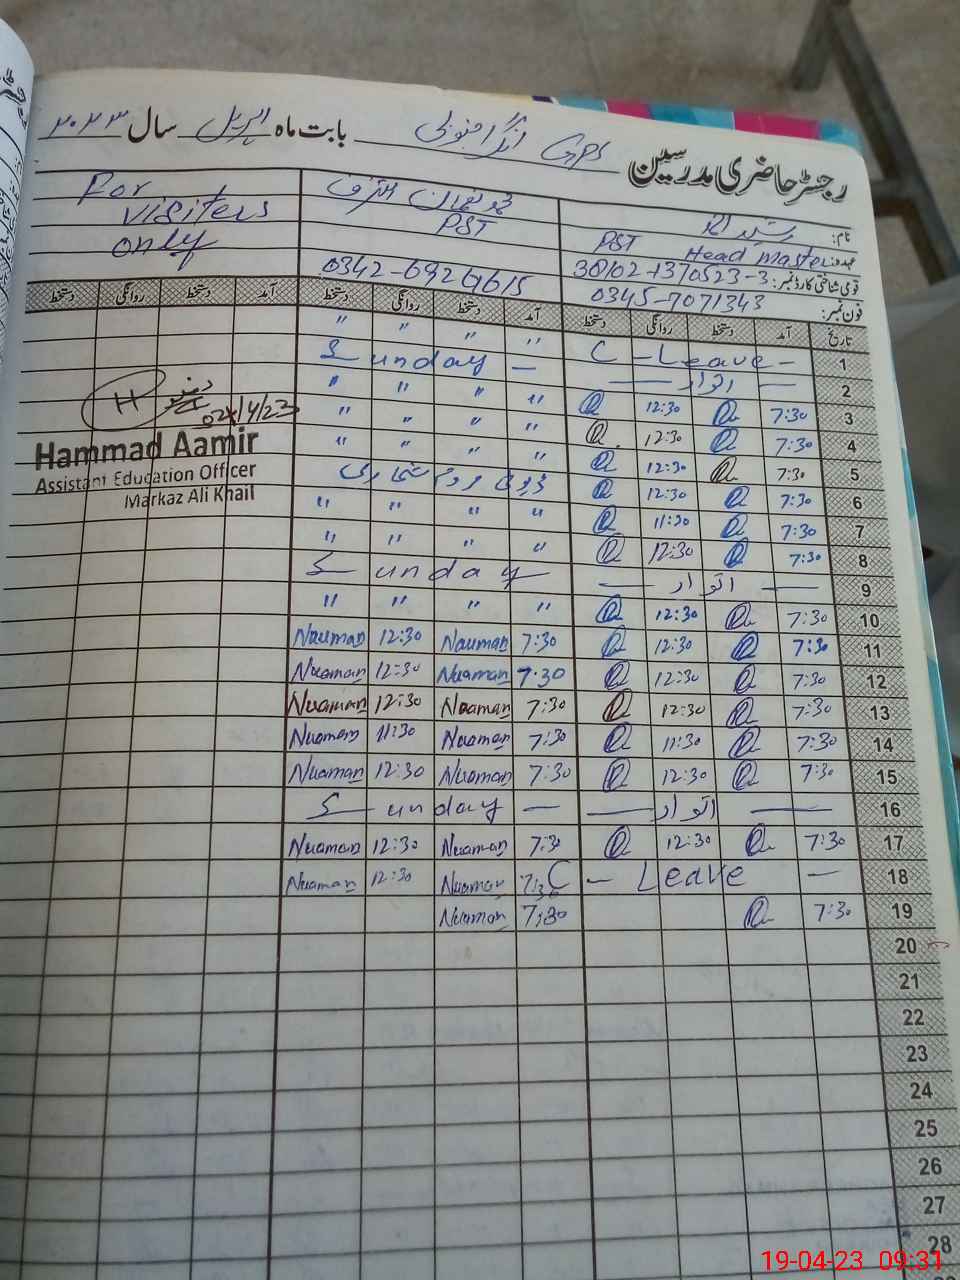 رجسٹر حاضری مدرسین GPS بابت ماہ اپریل سال ۲۰۲۳
نام:
عہدہ: PST Head master
PST
قومی شناختی کارڈ نمبر: 38102-1370523-3
فون نمبر: 0345-7071343
0342-6926615
For
visiters
only
تاریخ آمد دستخط روانگی دستخط آمد دستخط روانگی دستخط آمد دستخط روانگی دستخط
1 C - Leave - " " " "
2 — اتوار — Sunday —
3 7:30 12:30 " " " "
4 7:30 12:30 " " " "
5 7:30 12:30 " " " "
6 7:30 12:30 ڈیوٹی مردم شماری
7 7:30 11:30 " " " "
8 7:30 12:30 " " " "
9 — اتوار — Sunday
10 7:30 12:30 " " " "
11 7:30 12:30 7:30 Nauman 12:30 Nauman
12 7:30 12:30 7:30 Nuaman 12:30 Nuaman
13 7:30 12:30 7:30 Nuaman 12:30 Nuaman
14 7:30 11:30 7:30 Nuaman 11:30 Nuaman
15 7:30 12:30 7:30 Nuaman 12:30 Nuaman
16 — اتوار — Sunday —
17 7:30 12:30 7:30 Nuaman 12:30 Nuaman
18 C - Leave - 7:30 Nuaman 12:30 Nuaman
19 7:30 7:30 Nuaman
20
21
22
23
24
25
26
27
28
H
04/4/23
Hammad Aamir
Assistant Education Officer
Markaz Ali Khail
19-04-23 09:31